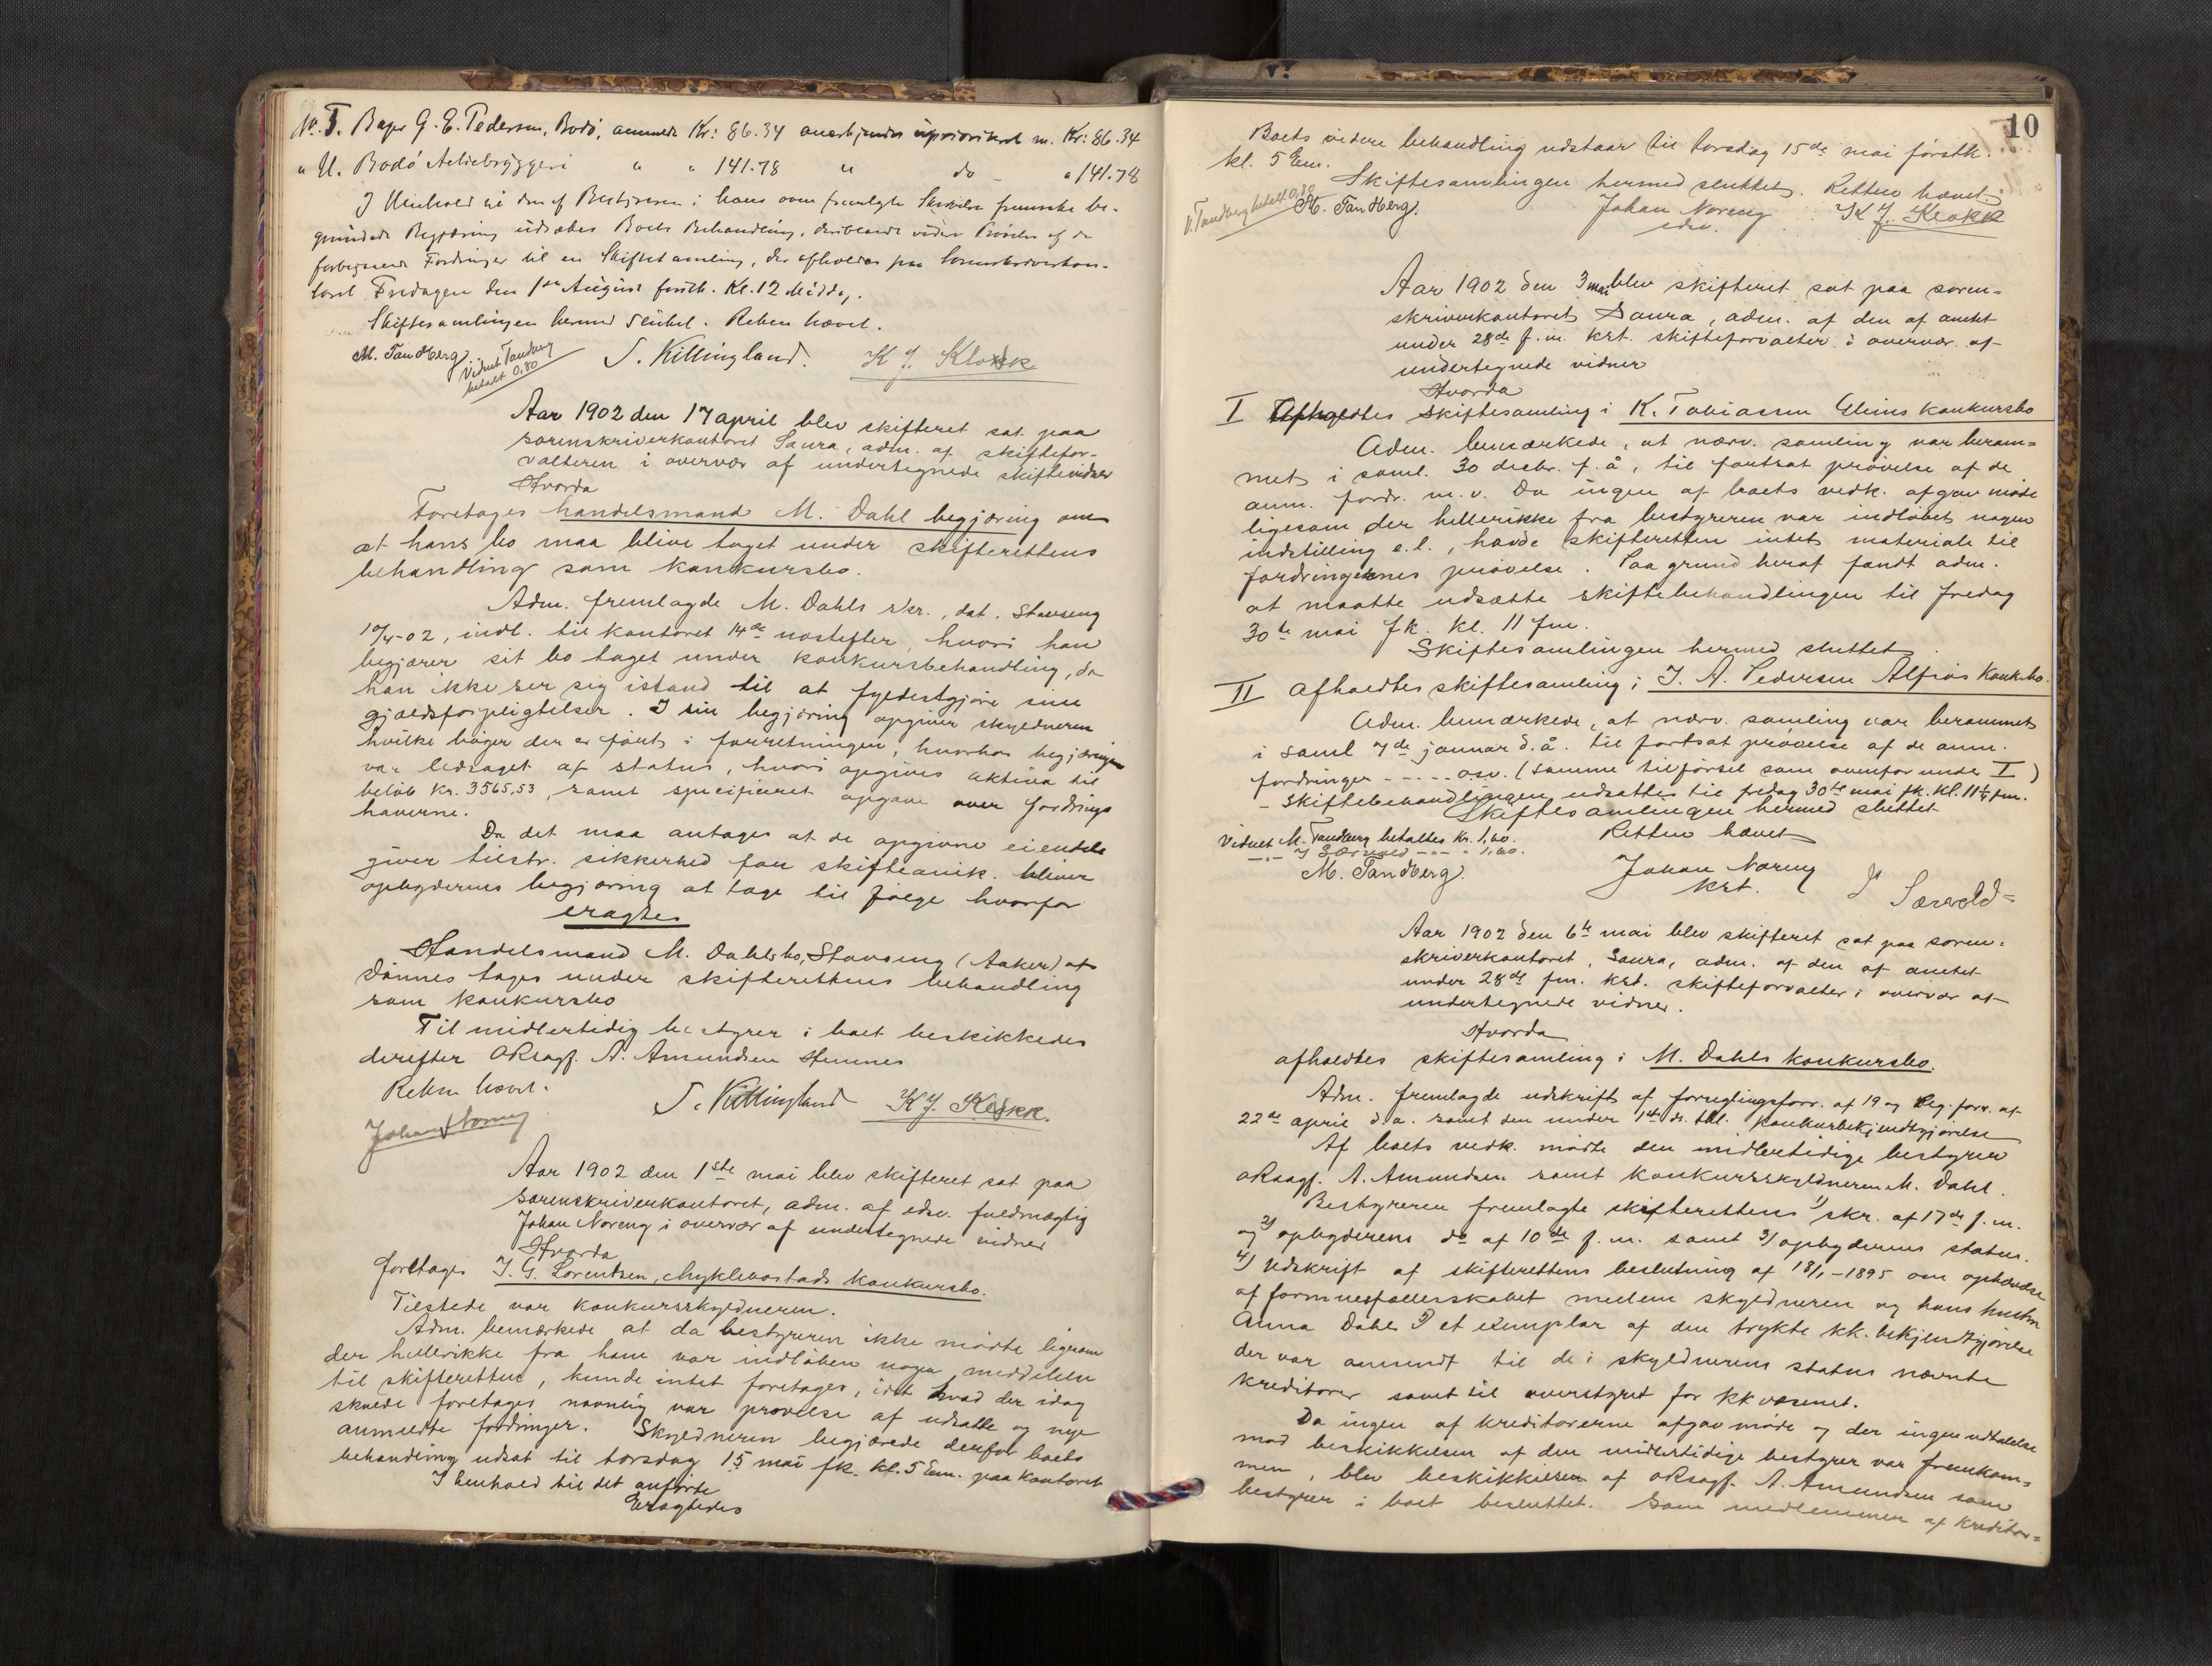 No. T. Bager G. E. Pedersen, Bodö, anmeldt Kr: 86.34 anerkjendes uprioriteret m. Kr: 86.34
" U. Bodö Actiebryggeri " " 141.78 " do - " 141.78
I Henhold til den af Bestyreren i hans oven fremlagte Skrivelse fremsatte be-
grundede Begjæring udsættes Boets Behandling, deriblandt videre Prövelse af de
foreliggende Fordringer til en Skiftesamling, der afholdes paa Sorenskriverkon-
toret Fredagen den 1ste August förstk. Kl. 12 Middag.
Skiftesamlingen hermed sluttet. Retten hævet.
M. Tandberg. S. Killingland. K J. Klokk
Vidnet Tandberg
betalt 0.80
Aar 1902 den 17 april blev skifteret sat paa
sorenskriverkontoret Saura, adm. af skiftefor-
valteren i overvær af undertegnede skiftevidner
Hvorda
Foretages handelsmand M. Dahl begjæring om
at hans bo maa blive taget under skifterettens
behandling som konkursbo.
Adm. fremlagde M. Dahls skr., dat. Stavseng
10/4-02, indl. til kontoret 14de næstefter, hvori han
begjærer sit bo taget under konkursbehandling, da
han ikke ser sig istand til at fyldestgjøre sine
gjældsforpligtelser. I sin begjæring opgiver skyldneren
hvilke bøger der er ført i forretningen, hvorhos begjæringen
var ledsaget af status, hvori opgives aktiva til
beløb kr. 3565,53, samt specificeret opgave over fordrings
haverne.
Da det maa antages at de opgivne eiendele
giver tilstr. sikkerhed for skifteomk. bliver
opbyderens begjæring at tage til følge hvorfor
eragtes
Handelsmand M. Dahls bo, Stavseng (Aaker) af
Dönnes tages under skifterettens behandling
som konkursbo
Til midlertidig bestyrer i boet beskikkedes
derefter oRsagf. A. Amundsen Hemnes
Retten hævet.
S. Killingland K J. Klokk.
Johan Noreng
Aar 1902 den 1ste mai blev skifteret sat paa
sorenskriverkontoret, adm. af edsv. fuldmægtig
Johan Noreng i overvær af undertegnede vidner
Hvorda
foretages J. G. Lorentsen, Myklebostads konkursbo.
Tilstede var konkursskyldneren.
Adm. bemærkede at da bestyreren ikke mødte ligesom
der hellerikke fra ham var indløben nogen meddelelse
til skifteretten, kunde intet foretages, idet hvad der idag
skulde foretages navnlig var prøvelse af udsatte og nye
anmeldte fordringer. Skyldneren begjærede derfor boets
behandling udsat til torsdag 15 mai fk. kl. 5 Em. paa kontoret
I henhold til det anførte
Eragtedes
10
Boets videre behandling udstaar til torsdag 15de mai førstk.
kl. 5 Em.
Skiftesamlingen hermed sluttet. Retten hævet.
V. Tandberg betalt 0,80
M. Tandberg. Johan Noreng K J. Klokk
edsv.
Aar 1902 den 3 mai blev skifteret sat paa soren-
skriverkontoret Saura, adm. af den af amtet
under 28de f.m. kst. skifteforvalter i overvær af
undertegnede vidner
Hvorda
I Afholdtes skiftesamling i K. Tobiassen Gleins konkursbo
Adm. bemærkede, at nærv. samling var beram-
met i saml. 30 decbr. f. å, til fortsat prøvelse af de
anm. fordr. m. v. Da ingen af boets vedk. afgav møde
ligesom der hellerikke fra bestyreren var indløbet nogen
indstilling e.l., havde skifteretten intet materiale til
fordringernes prøvelse. Paa grund heraf fandt adm.
at maatte udsætte skiftebehandlingen til fredag
30te mai fk. kl. 11 fm.
Skiftesamlingen hermed sluttet
II afholdtes skiftesamling i J. A. Pedersen Alfrøs konk.bo.
Adm. bemærkede, at nærv. samling var berammet
i saml 7de januar d. å. til fortsat prøvelse af de anm.
fordringer - - - - - osv. (samme tilførsel som ovenfor under I)
- Skiftebehandlingen udsattes til fredag 30te mai fk. kl. 11 1/4 fm.
Skiftesamlingen hermed sluttet
Vidnet M. Tandberg betaltes kr. 1,60. Retten hævet
-"- J Særvold -"- " 1,60.
M. Tandberg. Johan Noreng
kst. J Særvold
Aar 1902 den 6te mai blev skifteret sat paa soren-
skriverkontoret, Saura, adm. af den af amtet
under 28de fm. kst. skifteforvalter i overvær af
undertegnede vidner.
Hvorda
afholdtes skiftesamling i M. Dahls konkursbo.
Adm. fremlagde udskrift af forseglingsforr. af 19 og reg. forr. af
22de april d. a. samt den under 1ste ds. konkursbekjendtgjørelse
Af boets vedk. mødte den midlertidige bestyrer
oRsagf. A. Amundsen samt konkursskyldneren M. Dahl.
Bestyreren fremlagte skifterettens 1) skr. af 17de f.m.
og 2) opbyderens do af 10de f. m. samt 3) opbyderens status.
4) Udskrift af skifterettens beslutning af 18/1-1895 om ophævelse
af formuesfællesskabet mellem skyldneren og hans hustru
Anna Dahl 5) et exemplar af den trykte kk. bekjendtgjørelse
der var omsendt til de i skyldnerens status nævnte
kreditorer samt til overstyret for kkvæsenet.
Da ingen af kreditorerne afgav møde og der ingen udtalelse
mod beskikkelsen af den midlertidige bestyrer var fremkom-
men, blev beskikkelsen af oRsagf. A. Amundsen som
bestyrer i boet besluttet. Som medlemmer af kreditor-